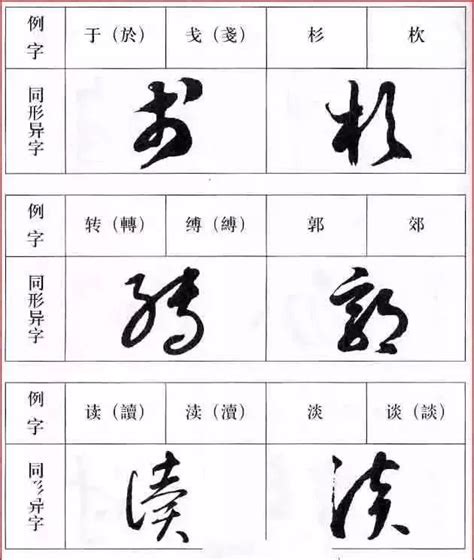 例字 于（於） 戋（戔） 杉 杦
同形异字
例字 转（轉） 缚（縛） 郭 郊
同形异字
例字 读（讀） 渎（瀆） 淡 谈（談）
同形异字